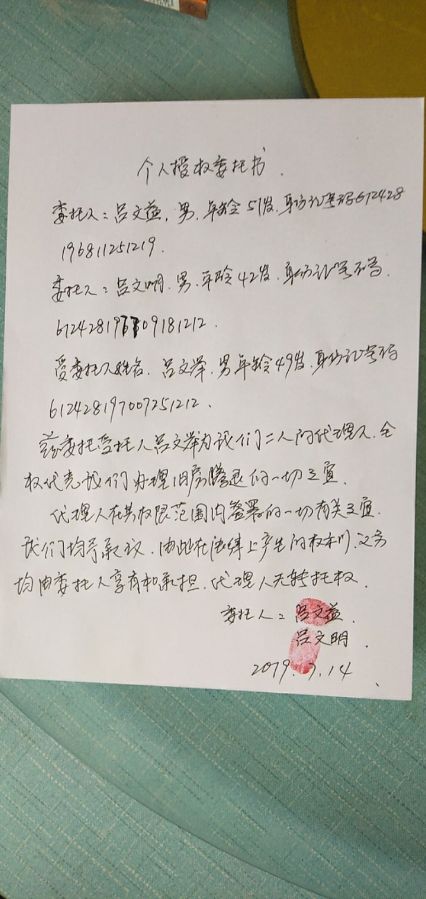 个人授权委托书.
委托人:吕文益,男,年龄51岁,身份证号码612428
196811251219.
委托人:吕文明,男,年龄42岁,身份证号码
612428197709181212
受委托人姓名,吕文举,男年龄49岁,身份证号码
612428197007251212.
兹委托受托人吕文举为我们二人的代理人,全
权代表我们办理旧房腾退的一切事宜
代理人在其权限范围内签署的一切有关事宜
我们均予承认,由此在法律上产生的权利,义务
均由委托人享有和承担,代理人无转托权.
委托人:吕文益.
吕文明.
2019.3.14